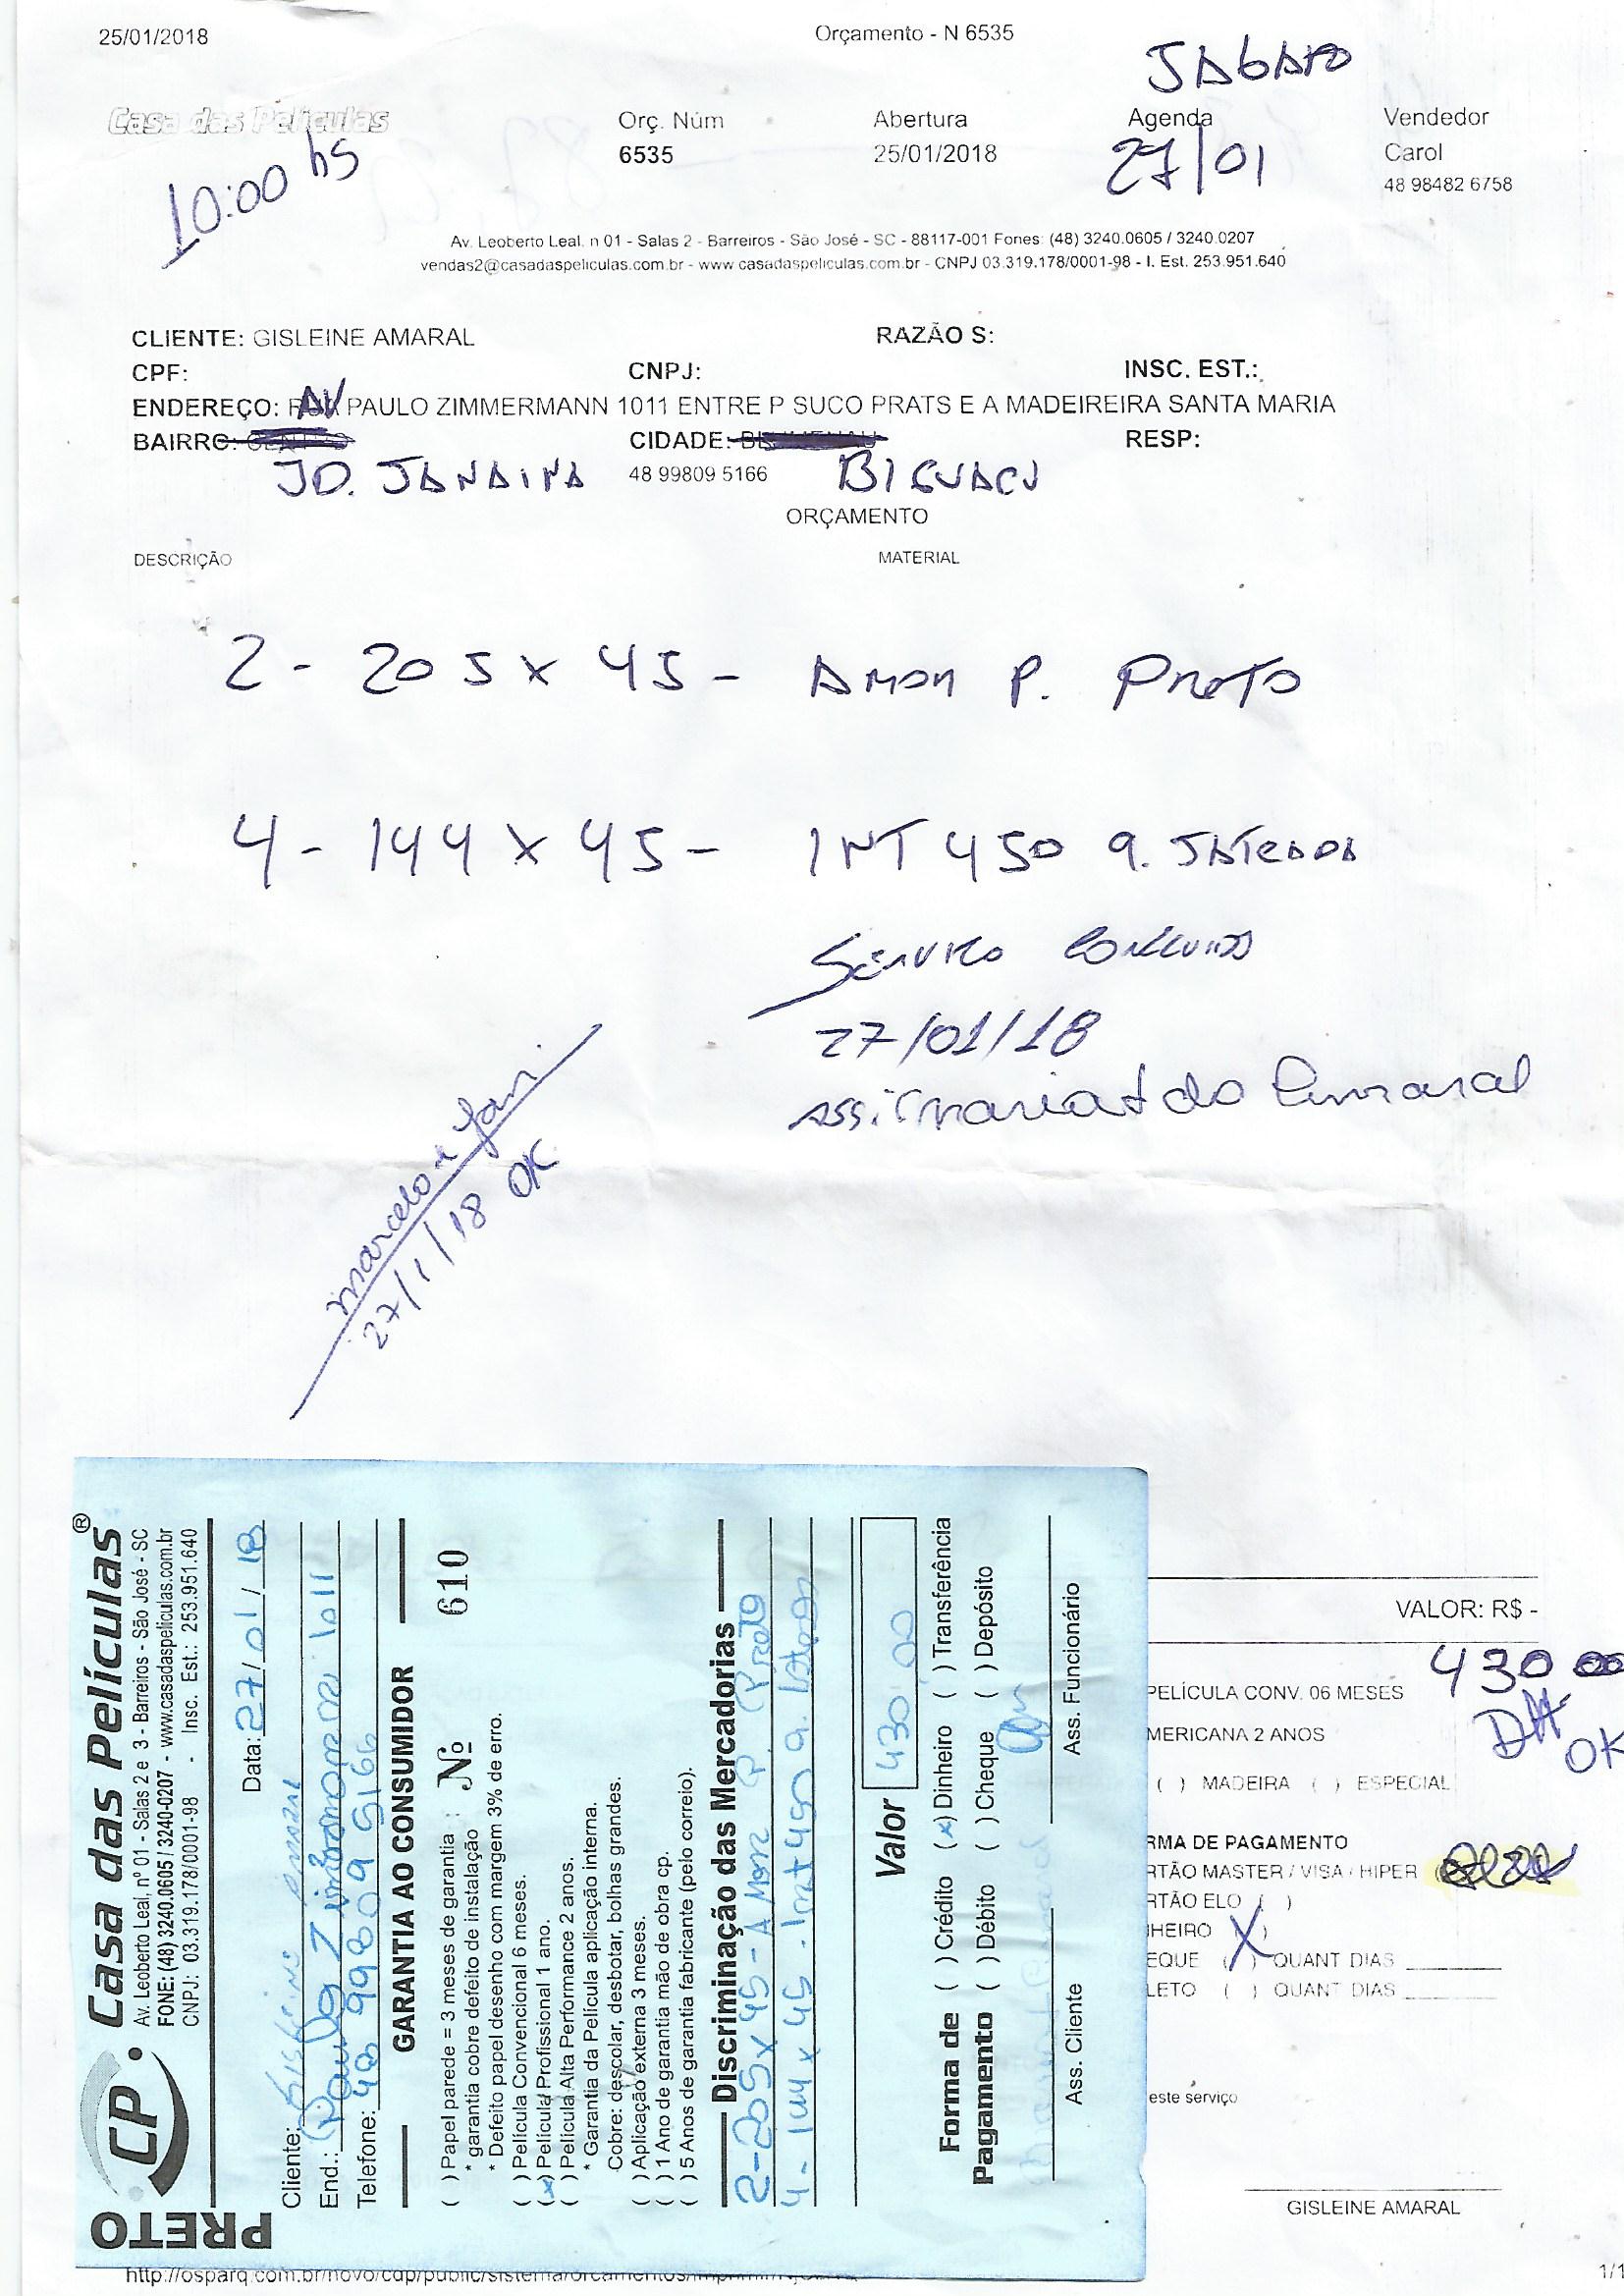 25/01/2018 Orçamento - N 6535
SABADO
Casa das Películas Orç. Núm Abertura Agenda Vendedor
6535 25/01/2018 27/01 Carol
48 98482 6758
10:00 hs
Av. Leoberto Leal, n 01 - Salas 2 - Barreiros - São José - SC - 88117-001 Fones: (48) 3240.0605 / 3240.0207
vendas2@casadaspeliculas.com.br - www.casadaspeliculas.com.br - CNPJ 03.319.178/0001-98 - I. Est. 253.951.640
CLIENTE: GISLEINE AMARAL RAZÃO S:
CPF: CNPJ: INSC. EST.:
ENDEREÇO: AV PAULO ZIMMERMANN 1011 ENTRE P SUCO PRATS E A MADEIREIRA SANTA MARIA
BAIRRO: CIDADE: RESP:
JD. JANAINA 48 99809 5166 BIGUACU
ORÇAMENTO
DESCRIÇÃO MATERIAL
2 - 205 x 45 - AMOR P. PRETO
4 - 144 x 45 - INT 450 A. JATEADA
SERVIÇO CONCLUIDO
27/01/18
ass: do Amaral
marcelo
27/1/18 OK
VALOR: R$ -
430 00
PELÍCULA CONV. 06 MESES
DH
MERICANA 2 ANOS
OK
( ) MADEIRA ( ) ESPECIAL
RMA DE PAGAMENTO
RTÃO MASTER / VISA / HIPER
RTÃO ELO ( )
HEIRO X )
EQUE ( ) QUANT DIAS
LETO ( ) QUANT DIAS
este serviço
GISLEINE AMARAL
1/1
CP. Casa das Películas®
PRETO
Av. Leoberto Leal, nº 01 - Salas 2 e 3 - Barreiros - São José - SC
FONE: (48) 3240.0605 / 3240-0207 - www.casadaspeliculas.com.br
CNPJ: 03.319.178/0001-98 - Insc. Est.: 253.951.640
Data: 27/01/18
Cliente:
End.: Paulo Zimermann 1011
Telefone: 48 99809 5166
GARANTIA AO CONSUMIDOR
( ) Papel parede = 3 meses de garantia : Nº 610
* garantia cobre defeito de instalação
* Defeito papel desenho com margem 3% de erro.
( ) Película Convencional 6 meses.
(x) Película Profissional 1 ano.
( ) Película Alta Performance 2 anos.
* Garantia da Película aplicação interna.
Cobre: descolar, desbotar, bolhas grandes.
( ) Aplicação externa 3 meses.
( ) 1 Ano de garantia mão de obra cp.
( ) 5 Anos de garantia fabricante (pelo correio).
Discriminação das Mercadorias
2 - 205 x 45 - AMOR P PRETO
4 - 144 x 45 - Int 450 a.
Valor 430,00
Forma de Pagamento
( ) Crédito (x) Dinheiro ( ) Transferência
( ) Débito ( ) Cheque ( ) Depósito
Ass. Cliente Ass. Funcionário